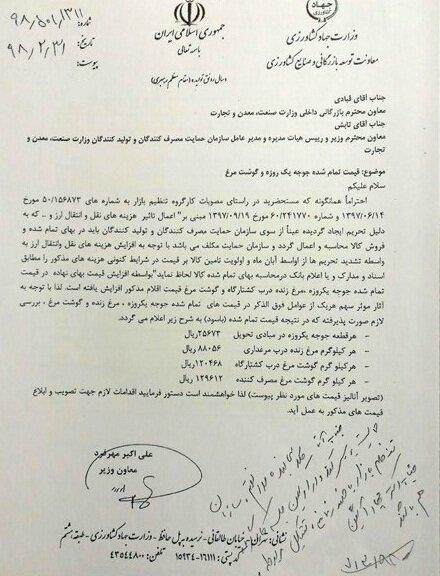 جهاد
کشاورزی
وزارت جهاد کشاورزی
معاونت توسعه بازرگانی و صنایع کشاورزی
جمهوری اسلامی ایران
باسمه تعالی
«سال رونق تولید» (مقام معظم رهبری)
شماره:
تاریخ: ۹۸,۲,۳۱
پیوست:
جناب آقای قبادی
معاون محترم بازرگانی داخلی وزارت صنعت، معدن و تجارت
جناب آقای تابش
معاون محترم وزیر و رییس هیات مدیره و مدیر عامل سازمان حمایت مصرف کنندگان و تولید کنندگان وزارت صنعت، معدن و
تجارت
موضوع: قیمت تمام شده جوجه یک روزه و گوشت مرغ
سلام علیکم
احتراماً همانگونه که مستحضرید در راستای مصوبات کارگروه تنظیم بازار به شماره های ۵۰/۱۵۶۸۷۳ مورخ
۱۳۹۷/۰۶/۱۴ و شماره ۶۰/۲۴۱۷۷۰ مورخ ۱۳۹۷/۰۹/۱۹ مبنی بر" اعمال تاثیر هزینه های نقل و انتقال ارز و .. که به
دلیل تحریم ایجاد گردیده عیناً از سوی سازمان حمایت مصرف کنندگان و تولید کنندگان باید در بهای تمام شده و
فروش کالا محاسبه و اعمال گردد و سازمان حمایت مکلف می باشد با توجه به افزایش هزینه های نقل وانتقال ارز به
واسطه تشدید تحریم ها از اواسط آبان ماه و اولویت تامین کالا بر قیمت در شرایط کنونی هزینه های مذکور را مطابق
اسناد و مدارک و یا اعلام بانک درمحاسبه بهای تمام شده کالا لحاظ نماید"بواسطه افزایش قیمت بهای نهاده در قیمت
تمام شده جوجه یکروزه ،مرغ زنده درب کشتارگاه و گوشت مرغ قیمت اقلام مذکور افزایش یافته است. لذا با توجه به
آثار موثر سهم هریک از عوامل فوق الذکر در قیمت های تمام شده جوجه یکروزه ، مرغ زنده و گوشت مرغ ، بررسی
لازم صورت پذیرفته که در نتیجه قیمت تمام شده (باسود) به شرح زیر اعلام می گردد.
- هرقطعه جوجه یکروزه در مبادی تحویل ۲۵۶۷۳ریال
- هر کیلوگرم مرغ زنده درب مرغداری ۸۸۰۵۶ ریال
- هرکیلو گرم گوشت مرغ درب کشتارگاه ۱۲۰۴۶۸ ریال
- هر کیلو گرم گوشت مرغ مصرف کننده ۱۲۹۶۱۲ ریال
(تصویر آنالیز قیمت های مورد نظر پیوست) لذا خواهشمند است دستور فرمایید اقدامات لازم جهت تصویب و ابلاغ
قیمت های مذکور به عمل آید.
علی اکبر مهرفرد
معاون وزیر
نشانی: تهران - خیابان طالقانی - نرسیده به پل حافظ - وزارت جهاد کشاورزی - طبقه هشتم
کدپستی: ۱۶۱۱۱-۱۵۹۳۴ تلفن: ۴۳۵۴۴۸۰۰